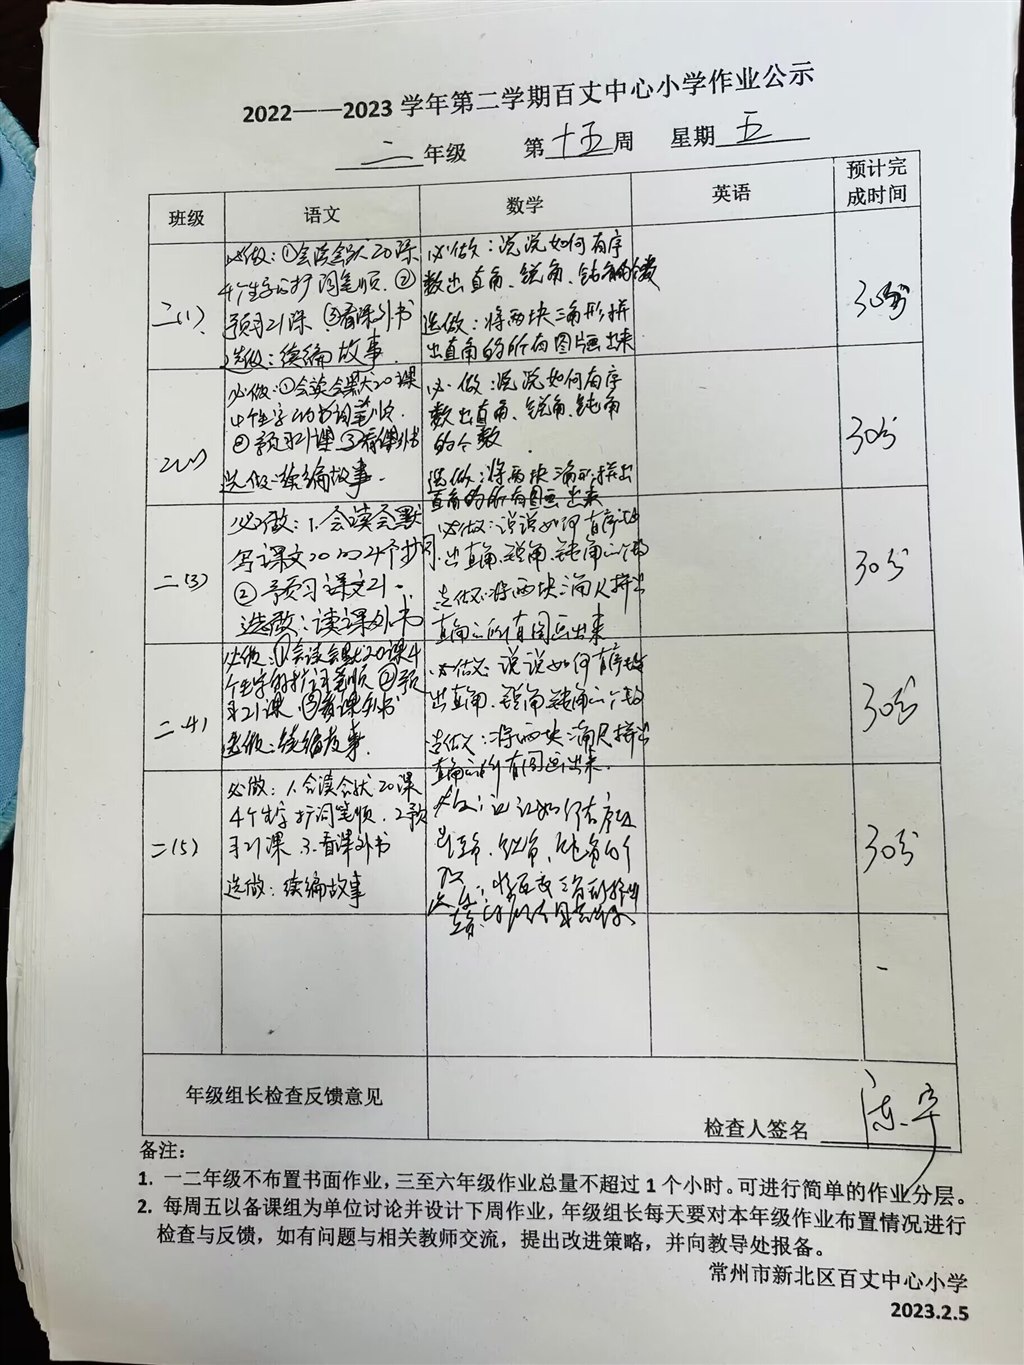 2022——2023 学年第二学期百丈中心小学作业公示
二 年级 第 十五 周 星期 五
班级 语文 数学 英语 预计完
成时间
二(1)
必做：①会读会默20课
4个生字的扩词笔顺.②
预习21课.③看课外书
选做：续编故事.
必做：说说如何有序
数出直角、锐角、钝角的个数
选做：将两块三角形拼
出直角的所有图画出来
30分
必做：①会读会默20课
4个生字的书词笔顺.
②预习21课③看课外书
选做：续编故事.
必做：说说如何有序
数出直角、锐角、钝角
的个数
选做：将两块三角形拼出
直角的所有图画出来
30分
二(3)
必做：1.会读会默
写课文20的4个抄词.
②预习课文21.
选做：读课外书
必做：说说如何有序数
出直角、锐角、钝角的个数
选做：将两块三角尺拼出
直角的所有图画出来
30分
二(4)
必做：①会读会默20课4
个生字的扩词笔顺②预
习21课.③看课外书
选做：续编故事.
必做：说说如何有序数
出直角、锐角、钝角的个数
选做：将两块三角尺拼出
直角的所有图画出来.
30分
二(5)
必做：1.会读会默20课
4个生字扩词笔顺.2预
习21课 3.看课外书
选做：续编故事
30分
年级组长检查反馈意见
检查人签名
备注：
1. 一二年级不布置书面作业，三至六年级作业总量不超过 1 个小时。可进行简单的作业分层。
2. 每周五以备课组为单位讨论并设计下周作业，年级组长每天要对本年级作业布置情况进行
检查与反馈，如有问题与相关教师交流，提出改进策略，并向教导处报备。
常州市新北区百丈中心小学
2023.2.5